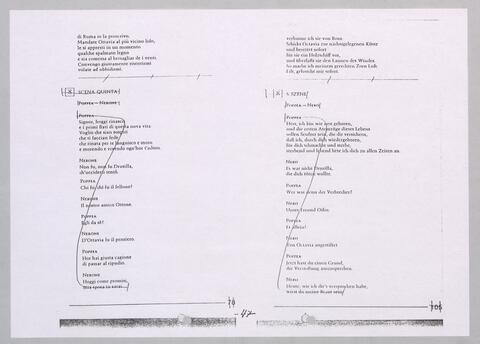 di Roma io la proscrivo.
Mandate Ottavia al più vicino lido,
le si appresti in un momento
qualche spalmato legno
e sia comessa al bersaglio de i venti.
Convengo giustamente risentirmi
volate ad obbidirmi.
SCENA QUINTA
POPPEA — NERONE
POPPEA
Signor, hoggi rinasco
e i primi fiati di questa nova vita
Voglio che sian sospiri
che ti faccian fede
che rinata per te languisco e moro
e morendo e vivendo ogn'hor t'adoro.
NERONE
Non fu, non fu Drusilla,
ch'ucciderti tentò.
POPPEA
Chi fu, chi fu il fellone?
NERONE
Il nostro amico Ottone.
POPPEA
Egli da sé?
NERONE
D'Ottavia fu il pensiero.
POPPEA
Hor hai giusta cagione
di passar al ripudio.
NERONE
Hoggi come promisi,
mia sposa tu sarai.
verbanne ich sie von Rom.
Schickt Octavia zur nächstgelegenen Küste
und bereitet sofort
für sie ein Holzschiff vor,
und überlaßt sie den Launen des Windes.
So mache ich meinem gerechten Zorn Luft.
Eilt, gehorcht mir sofort.
5. SZENE
POPPEA — NERO
POPPEA
Herr, ich bin wie neu geboren,
und die ersten Atemzüge dieses Lebens
sollen Seufzer sein, die dir versichern,
daß ich, durch dich wiedergeboren,
für dich schmachte und sterbe,
sterbend und lebend bete ich dich zu allen Zeiten an.
NERO
Es war nicht Drusilla,
die dich töten wollte.
POPPEA
Wer war denn der Verbrecher?
NERO
Unser Freund Otho.
POPPEA
Er allein?
NERO
Von Octavia angestiftet
POPPEA
Jetzt hast du einen Grund,
die Verstoßung auszusprechen.
NERO
Heute, wie ich dir's versprochen habe,
wirst du meine Braut sein
- 47 -